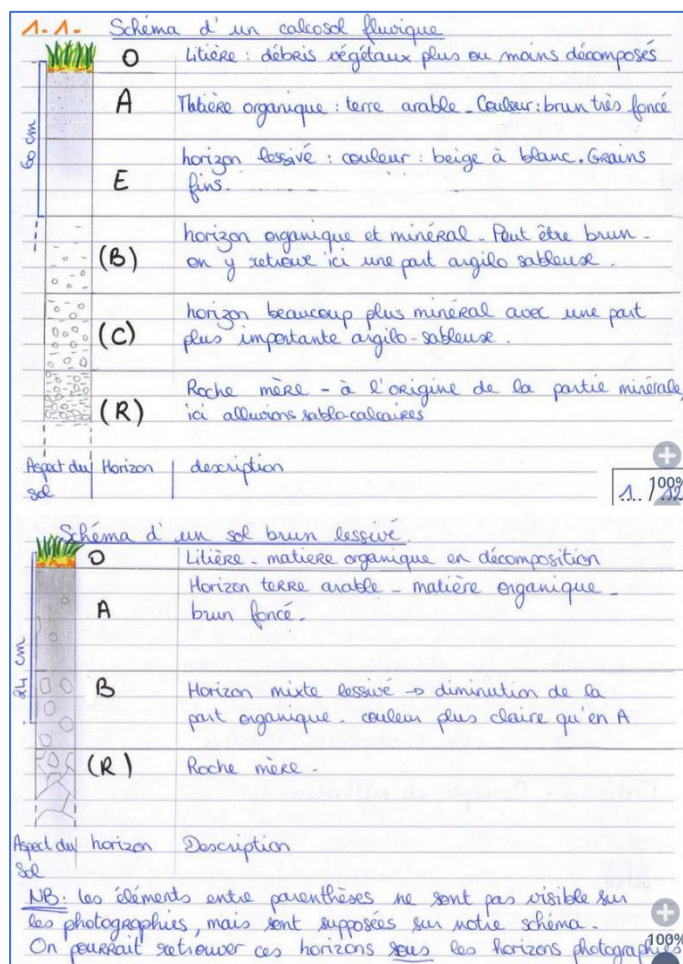 1.1. Schéma d'un calcosol fluvique
O Litière : débris végétaux plus ou moins décomposés
A Matière organique : terre arable. Couleur : brun très foncé
60 cm
E horizon lessivé : couleur : beige à blanc. Grains
fins.
(B) horizon organique et minéral. Peut être brun.
on y retrouve ici une part argilo sableuse.
(C) horizon beaucoup plus minéral avec une part
plus importante argilo-sableuse.
(R) Roche mère - à l'origine de la partie minérale,
ici alluvions sablo-calcaires
Aspect du sol | Horizon | description
100%
1 / 12
Schéma d'un sol brun lessivé.
O Litière - matière organique en décomposition
A Horizon terre arable - matière organique -
brun foncé.
24 cm
B Horizon mixte lessivé → diminution de la
part organique. couleur plus claire qu'en A
(R) Roche mère -
Aspect du sol | horizon | Description
NB : les éléments entre parenthèses ne sont pas visible sur
les photographies, mais sont supposées sur notre schéma.
On pourrait retrouver ces horizons sous les horizons photographiés
100%